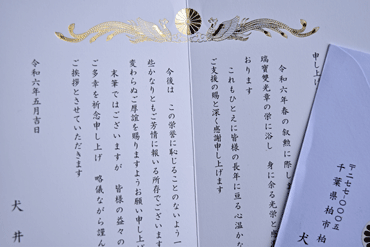 申し上げ
令和六年春の叙勲に際しま
瑞寶雙光章の栄に浴し 身に余る光栄と感
おります
これもひとえに皆様の長年に亘る心温かな
ご支援の賜と深く感謝申し上げます
今後は この栄誉に恥じることのないよう一
些かなりともご芳情に報いる所存でございます
変わらぬご厚誼を賜りますようお願い申し上げ
末筆ではございますが 皆様の益々の
ご多幸を祈念申し上げ 略儀ながら謹ん
ご挨拶とさせていただきます
令和六年五月吉日
犬井
〒二七七-〇〇〇五
千葉県柏市柏
犬